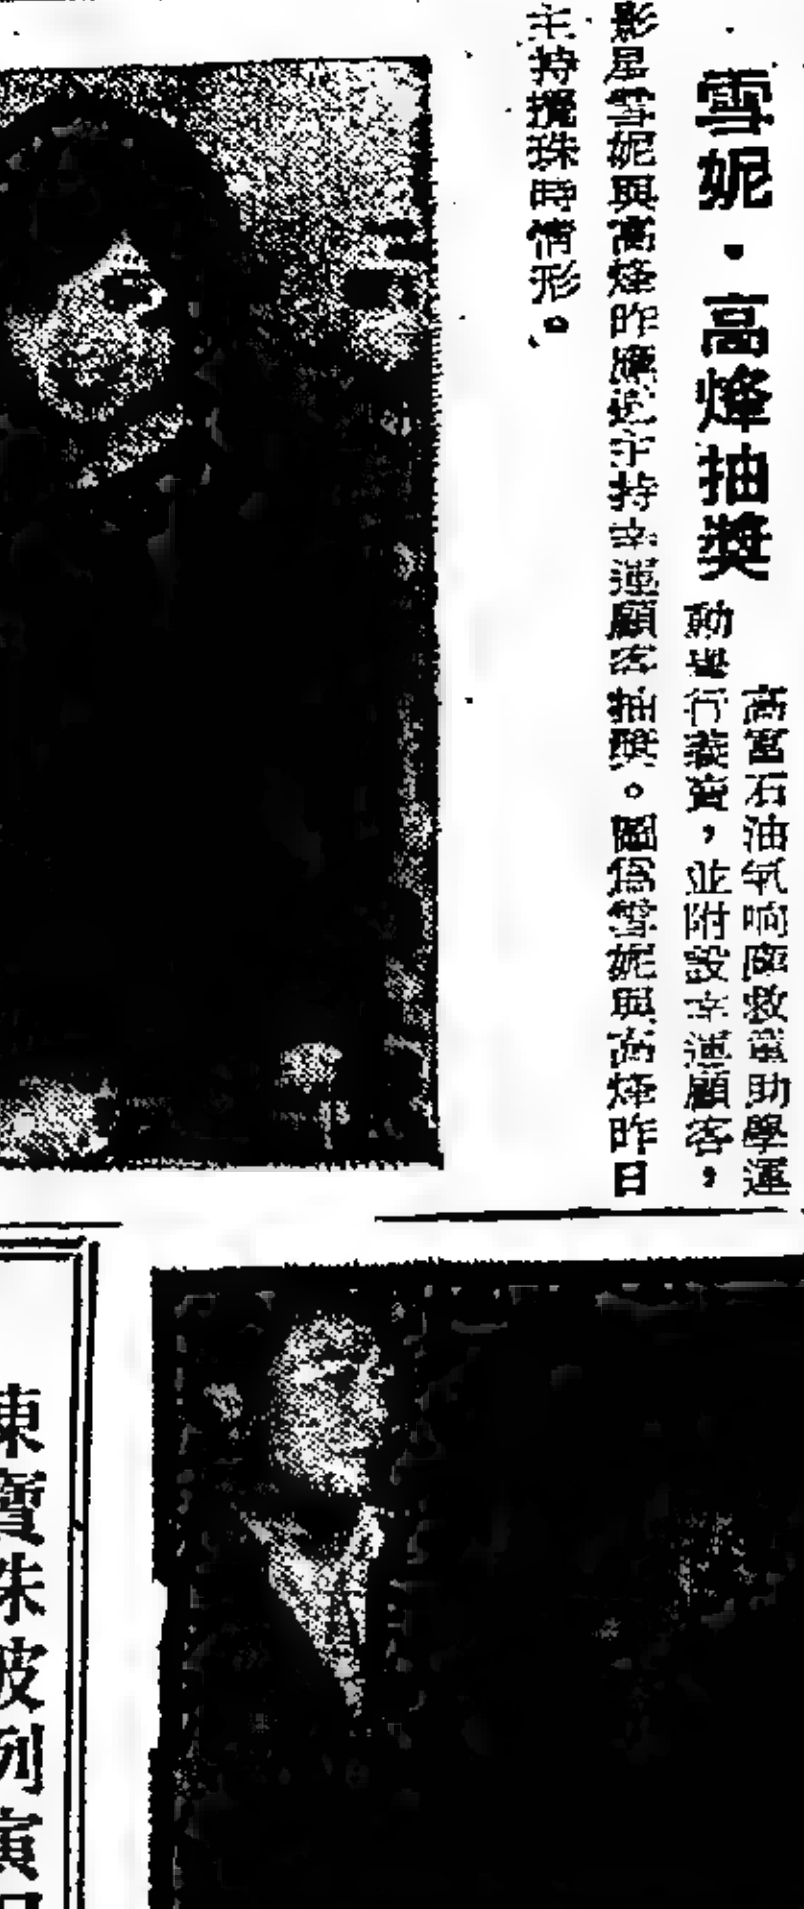 雪妮·高烽抽獎
高富石油氣响應救童助學運
動舉行義賣，並附設幸運顧客，
影星雪妮與高烽昨應邀主持幸運顧客抽獎。圖爲雪妮與高烽昨日
主持攪珠時情形。
陳寶珠破例演